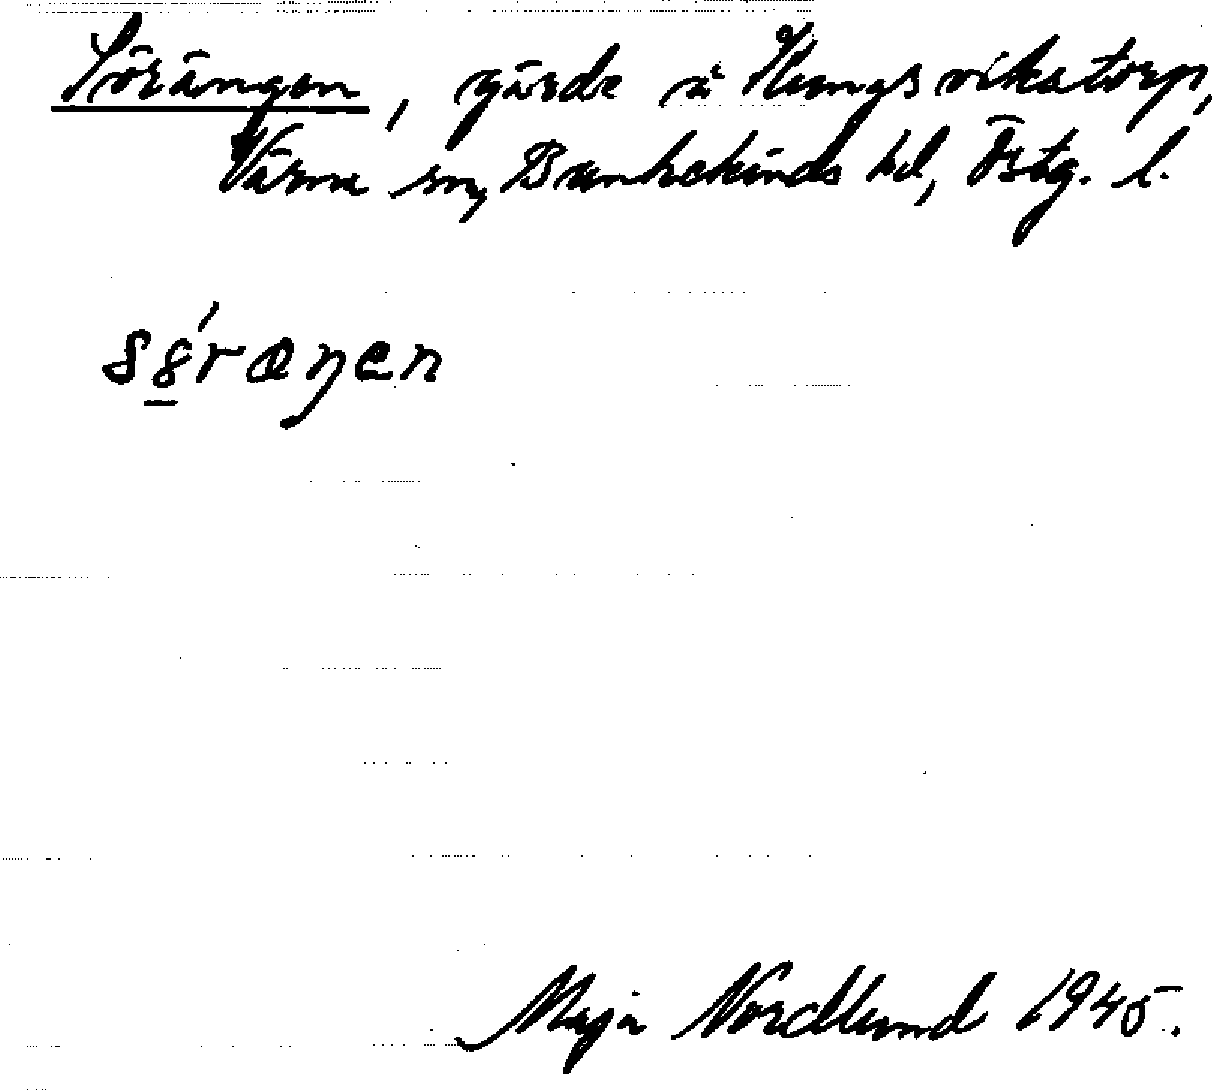 Sörängen, gärde å Kungsvikstorp,
Värna sn, Bankekinds hd, Östg. l.
sö́ræŋen
Maja Nordlund 1945.